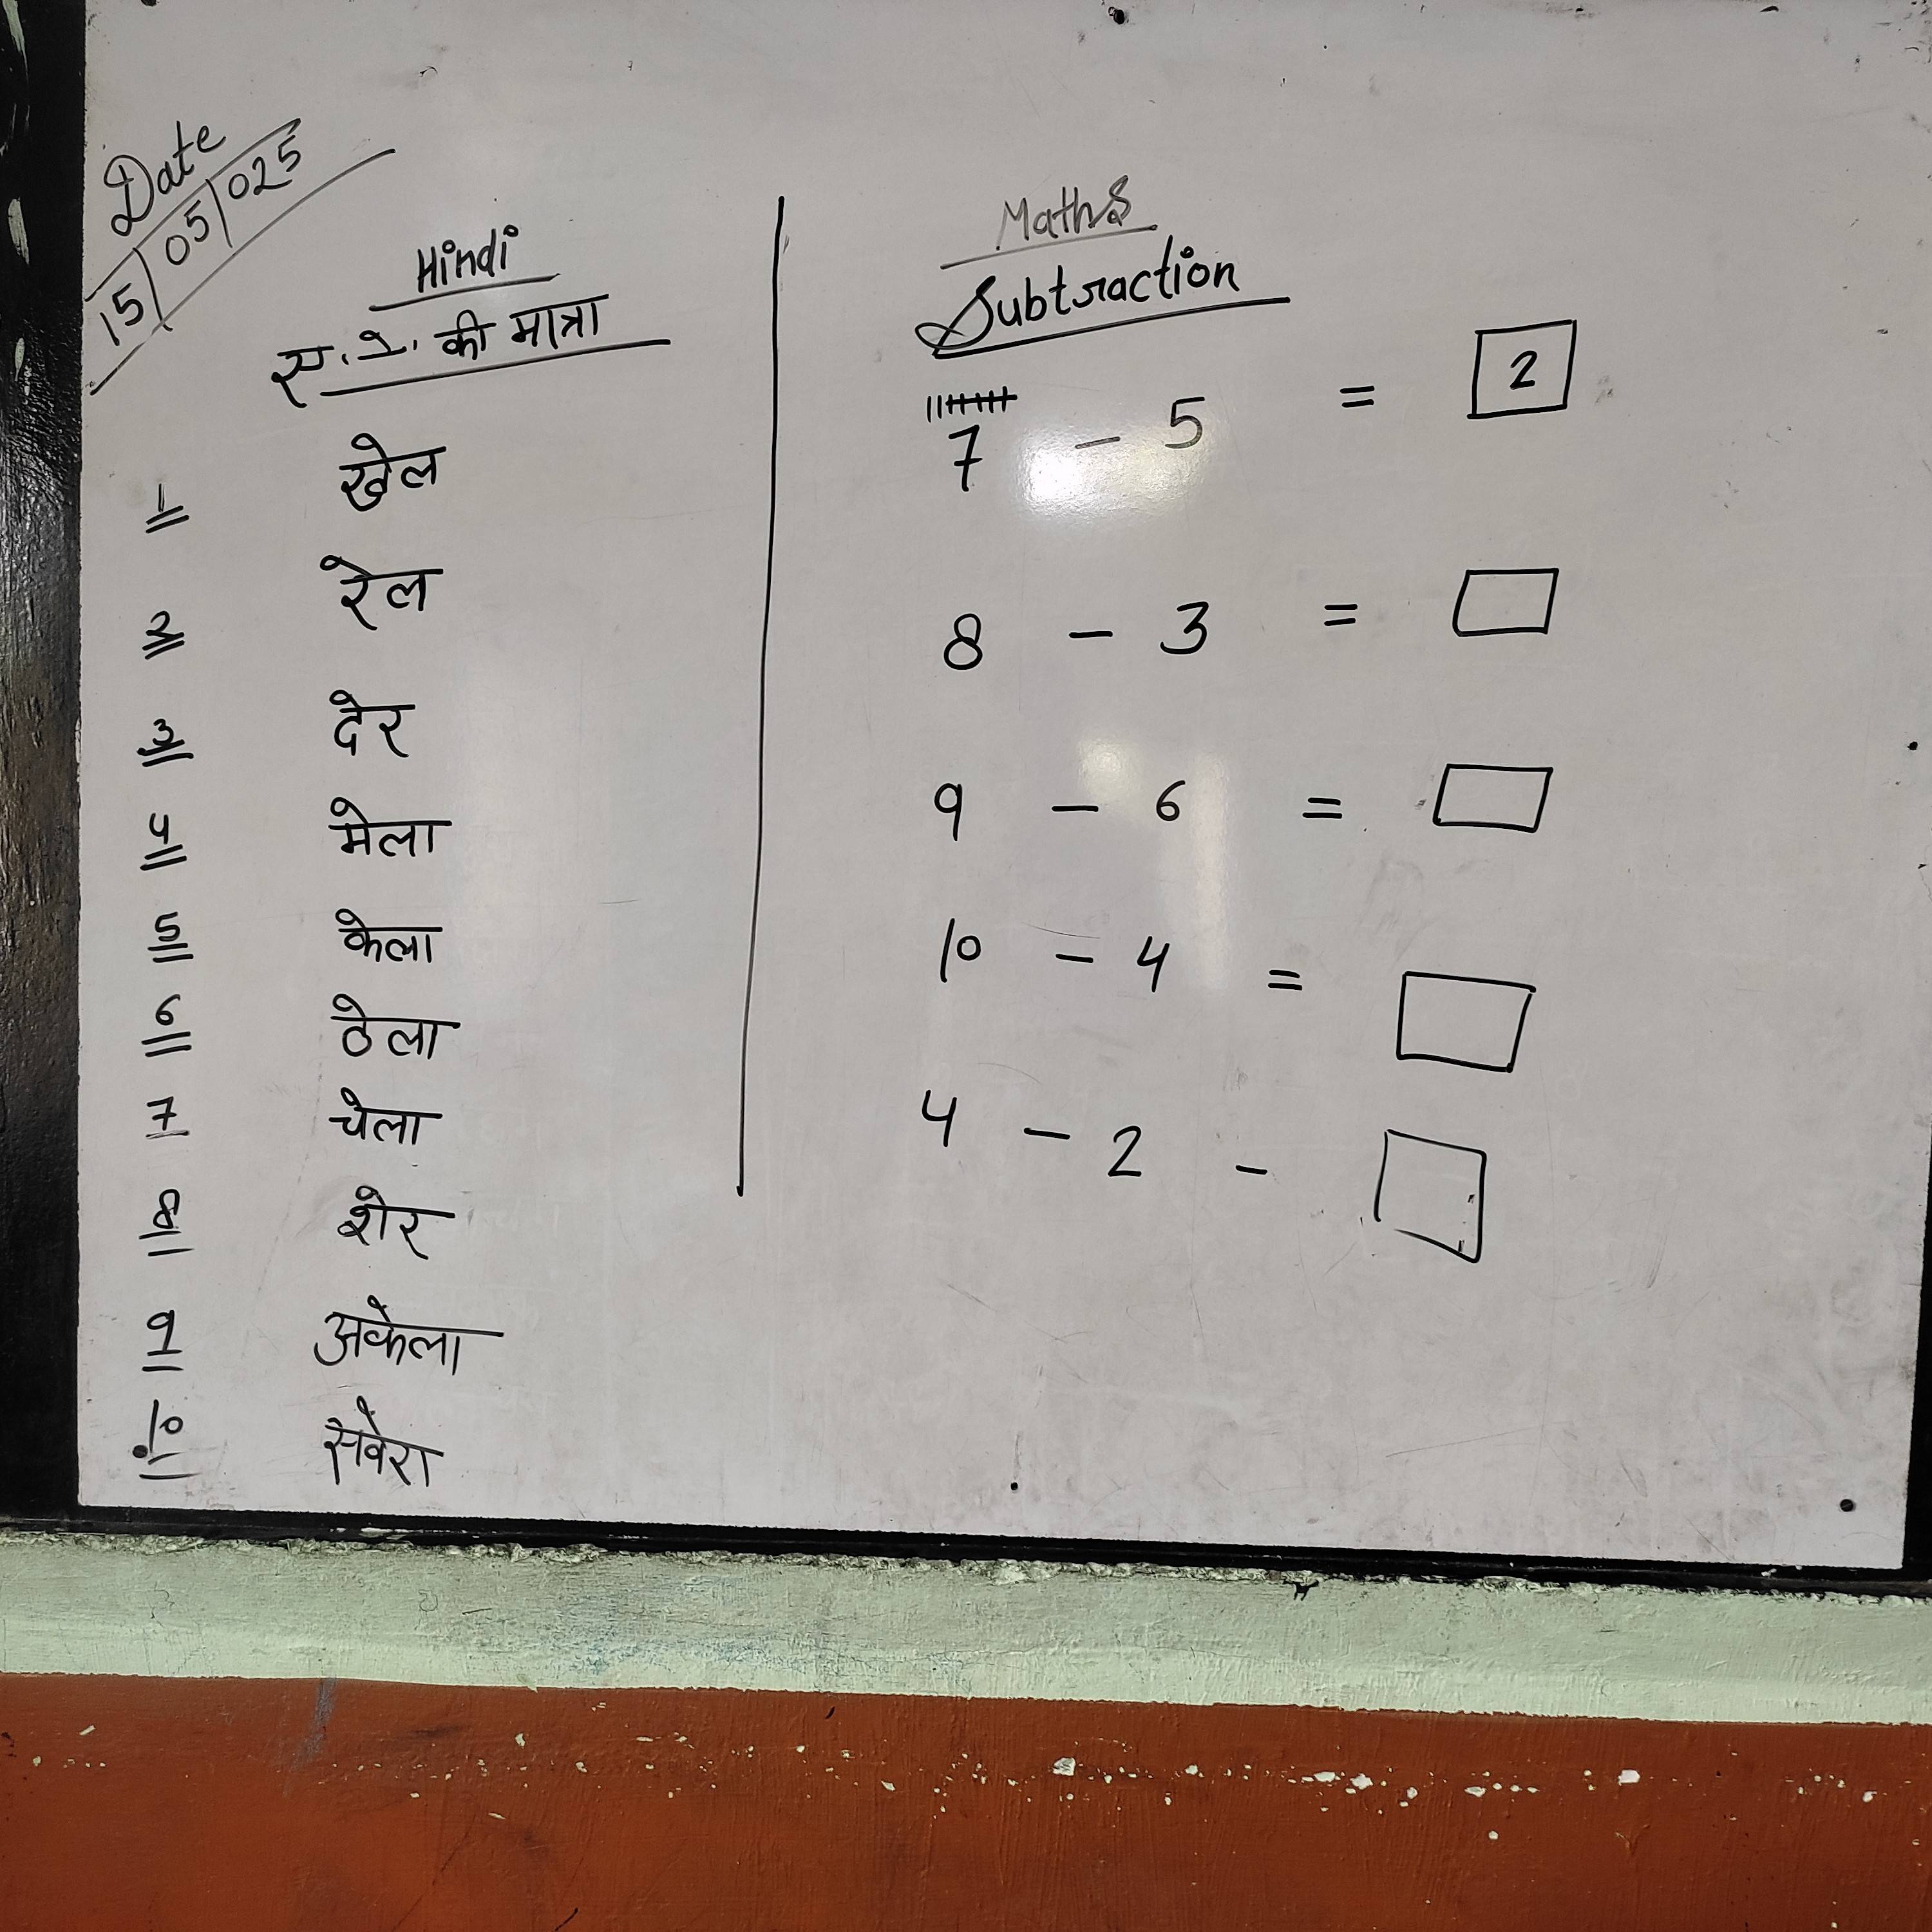 Date
15/05/025
Hindi
ए. े. की मात्रा
1 खेल
2 रेल
3 देर
4 मेला
5 केला
6 ठेला
7 चेला
8 शेर
9 अकेला
10 सवेरा
Maths
Subtraction
7 - 5 = 2
8 - 3 =
9 - 6 =
10 - 4 =
4 - 2 -